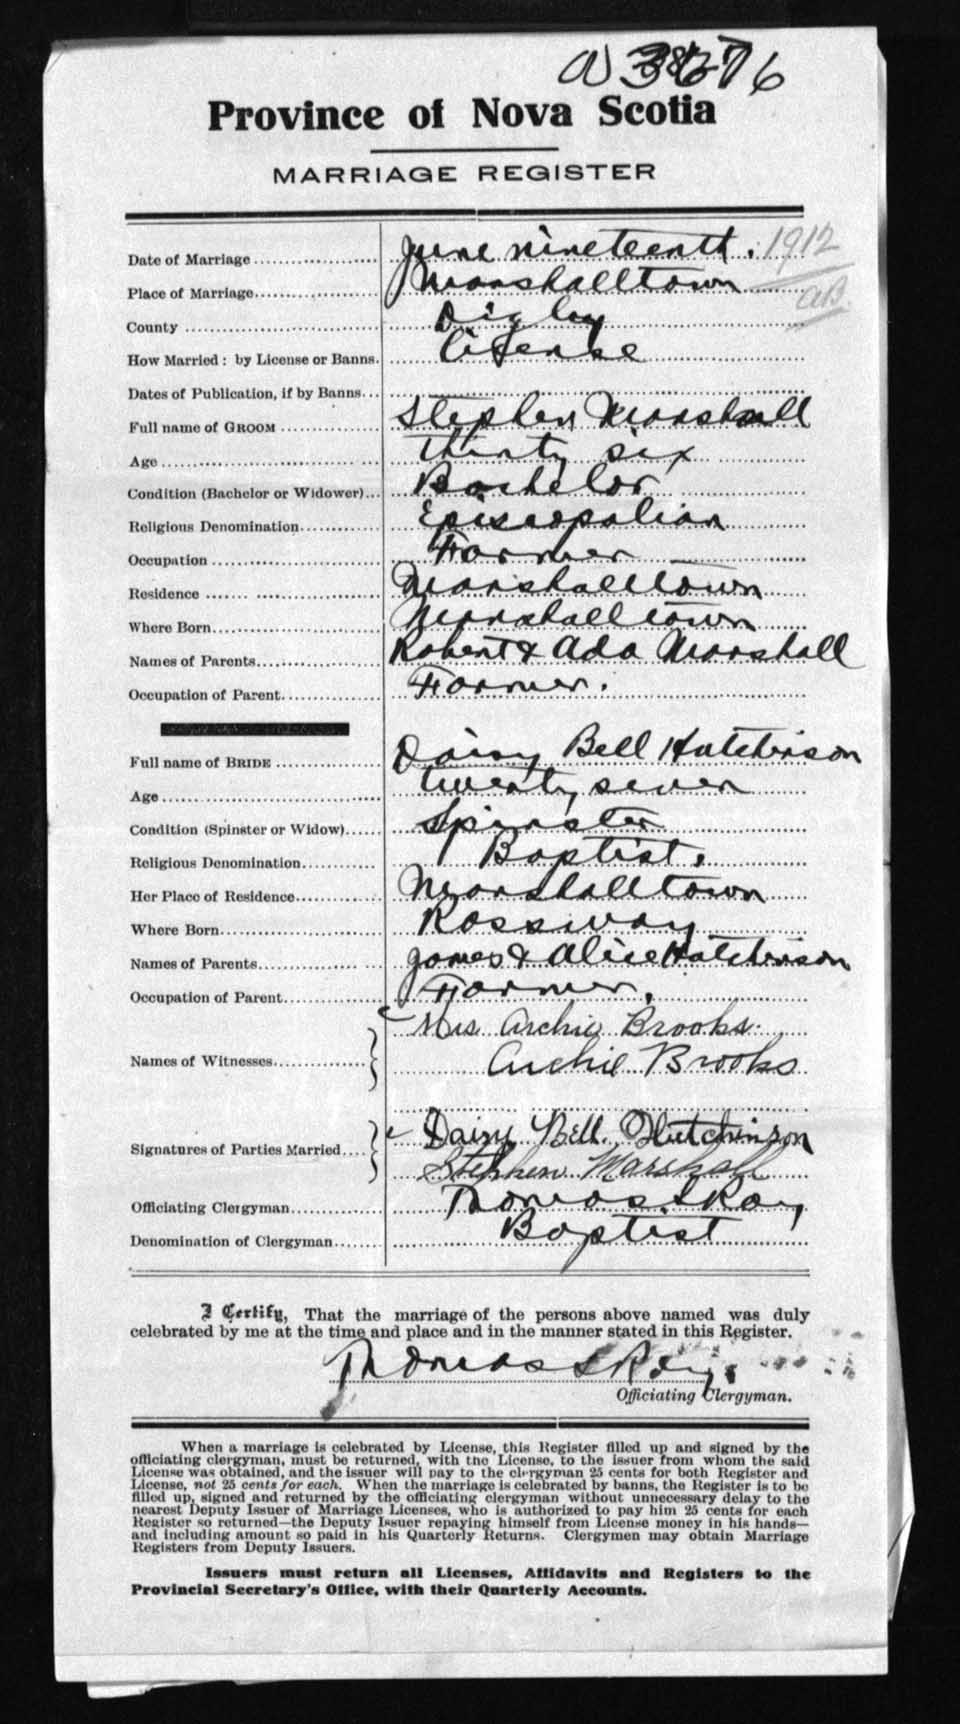 Province of Nova Scotia
MARRIAGE REGISTER
Date of Marriage June nineteenth. 1912
Place of Marriage Marshalltown aB.
County Digby
How Married: by License or Banns. License
Dates of Publication, if by Banns
Full name of GROOM Stephen Marshall
Age thirty six
Condition (Bachelor or Widower) Bachelor
Religious Denomination Episcopalian
Occupation Farmer
Residence Marshalltown
Where Born Marshalltown
Names of Parents Robert & Ada Marshall
Occupation of Parent Farmer.
Full name of BRIDE Daisy Bell Hutchinson
Age twenty seven
Condition (Spinster or Widow) Spinster
Religious Denomination Baptist.
Her Place of Residence Marshalltown
Where Born Rossway
Names of Parents James & Alice Hutchinson
Occupation of Parent Farmer.
Mrs Archie Brooks.
Names of Witnesses Archie Brooks
Daisy Bell. Hutchinson
Signatures of Parties Married
Stephen Marshall
Officiating Clergyman Thomas
Denomination of Clergyman Baptist
I Certify, That the marriage of the persons above named was duly
celebrated by me at the time and place and in the manner stated in this Register.
Thomas
Officiating Clergyman.
When a marriage is celebrated by License, this Register filled up and signed by the
officiating clergyman, must be returned, with the License, to the issuer from whom the said
License was obtained, and the issuer will pay to the clergyman 25 cents for both Register and
License, not 25 cents for each. When the marriage is celebrated by banns, the Register is to be
filled up, signed and returned by the officiating clergyman without unnecessary delay to the
nearest Deputy Issuer of Marriage Licenses, who is authorized to pay him 25 cents for each
Register so returned—the Deputy Issuer repaying himself from License money in his hands—
and including amount so paid in his Quarterly Returns. Clergymen may obtain Marriage
Registers from Deputy Issuers.
Issuers must return all Licenses, Affidavits and Registers to the
Provincial Secretary's Office, with their Quarterly Accounts.